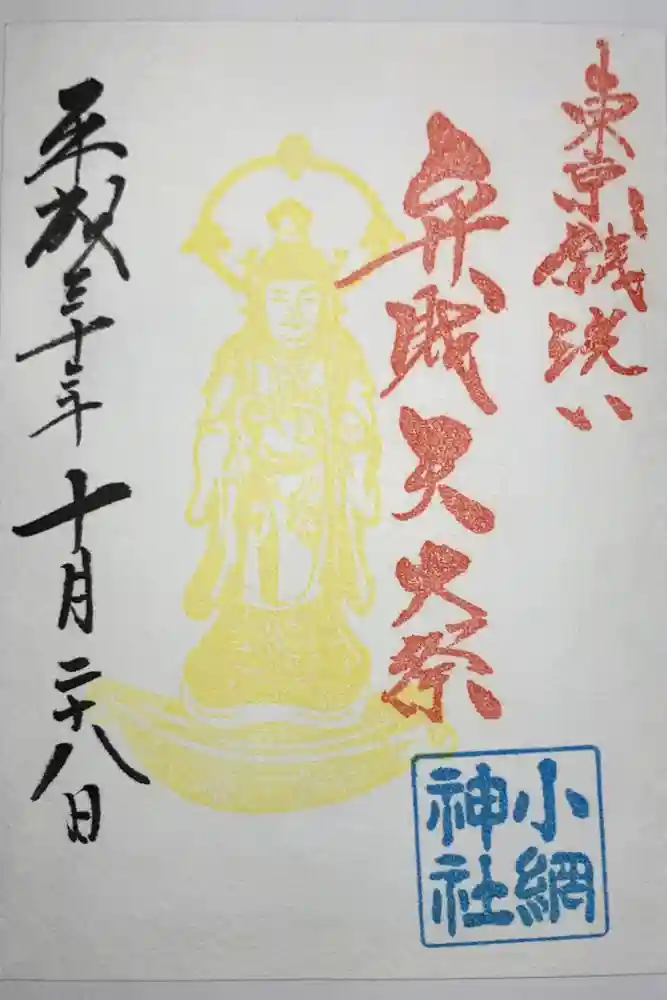 東京銭洗い
弁財天大祭
小網
神社
平成三十年十月二十八日